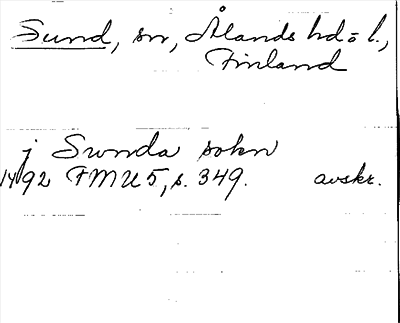 Sund, sn, Ålands hd o l.,
Finland
j Swnda sokn
1492 FMU 5, s. 349. avskr.